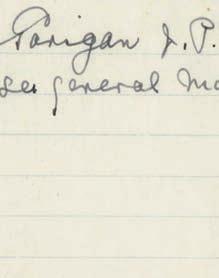 Parigan J. P.
se. general Ma